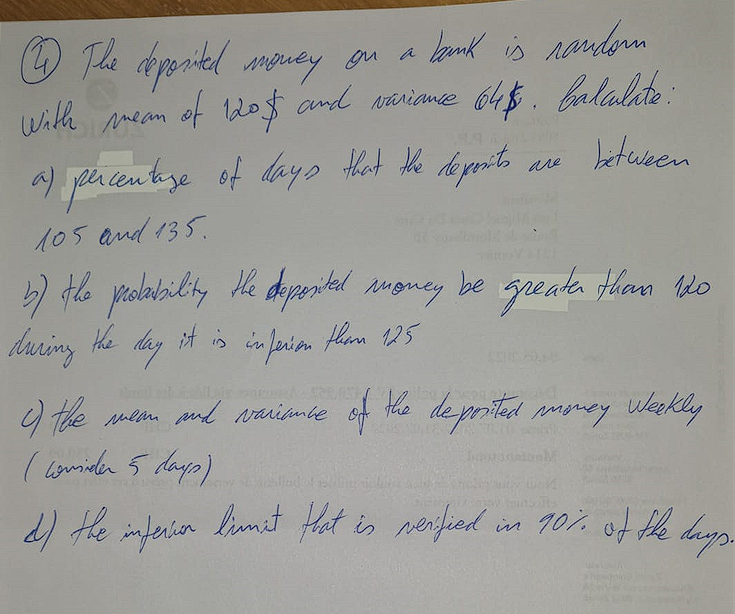 ④ The deposited money on a bank is random
with mean of 120$ and variance 64$. Calculate:
a) percentage of days that the deposits are between
105 and 135.
b) the probability the deposited money be greater than 120
during the day it is inferior than 125
c) the mean and variance of the deposited money weekly
(consider 5 days)
d) the inferior limit that is verified in 90% of the days.